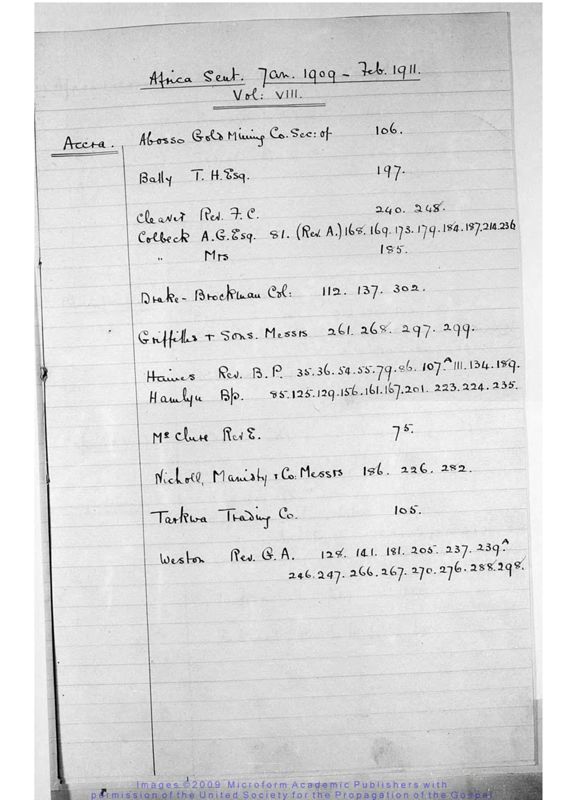 Africa Sent. Jan. 1909 - Feb. 1911.
Vol: VIII.
Accra.
Abosso Gold Mining Co. Sec: of 106.
Bally T. H. Esq. 197.
Cleaver Rev. F. C. 240. 248.
Colbeck A. G. Esq. 81. (Rev. A.) 168. 169. 173. 179. 184. 187. 214. 236
" Mrs 185.
Drake-Brockman Col: 112. 137. 302.
Griffiths + Sons. Messrs 261. 268. 297. 299.
Haines Rev. B. P. 35. 36. 54. 55. 79. 86. 107.A 111. 134. 189.
Hamlyn Bp. 85. 125. 129. 156. 161. 167. 201. 223. 224. 235.
Mc Clure Rev E. 75.
Nicholl, Manisty + Co. Messrs 186. 226. 282.
Tarkwa Trading Co. 105.
Weston Rev. G. A. 128. 141. 181. 205. 237. 239.A
246. 247. 266. 267. 270. 276. 288. 298.
Images ©2009 Microform Academic Publishers with
permission of the United Society for the Propagation of the Gospel